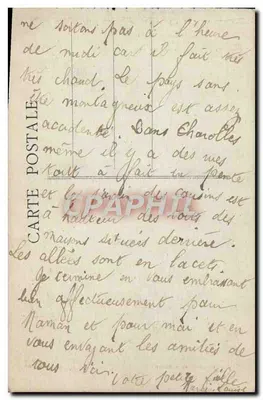 ne sortons pas à l'heure
de midi car il fait très
très chaud. Le pays sans
être montagneux est assez
accidenté. Dans Charolles
même il y a des rues
tout à fait en pente
et le jardin des cousins est
à hauteur des toits des
maisons situées derrière.
Les allées sont en lacets.
Je termine en vous embrassant
bien affectueusement pour
Maman et pour moi et en
vous envoyant les amitiés de
tous ici.
Votre petite fille
CARTE POSTALE
CPAPHIL.com